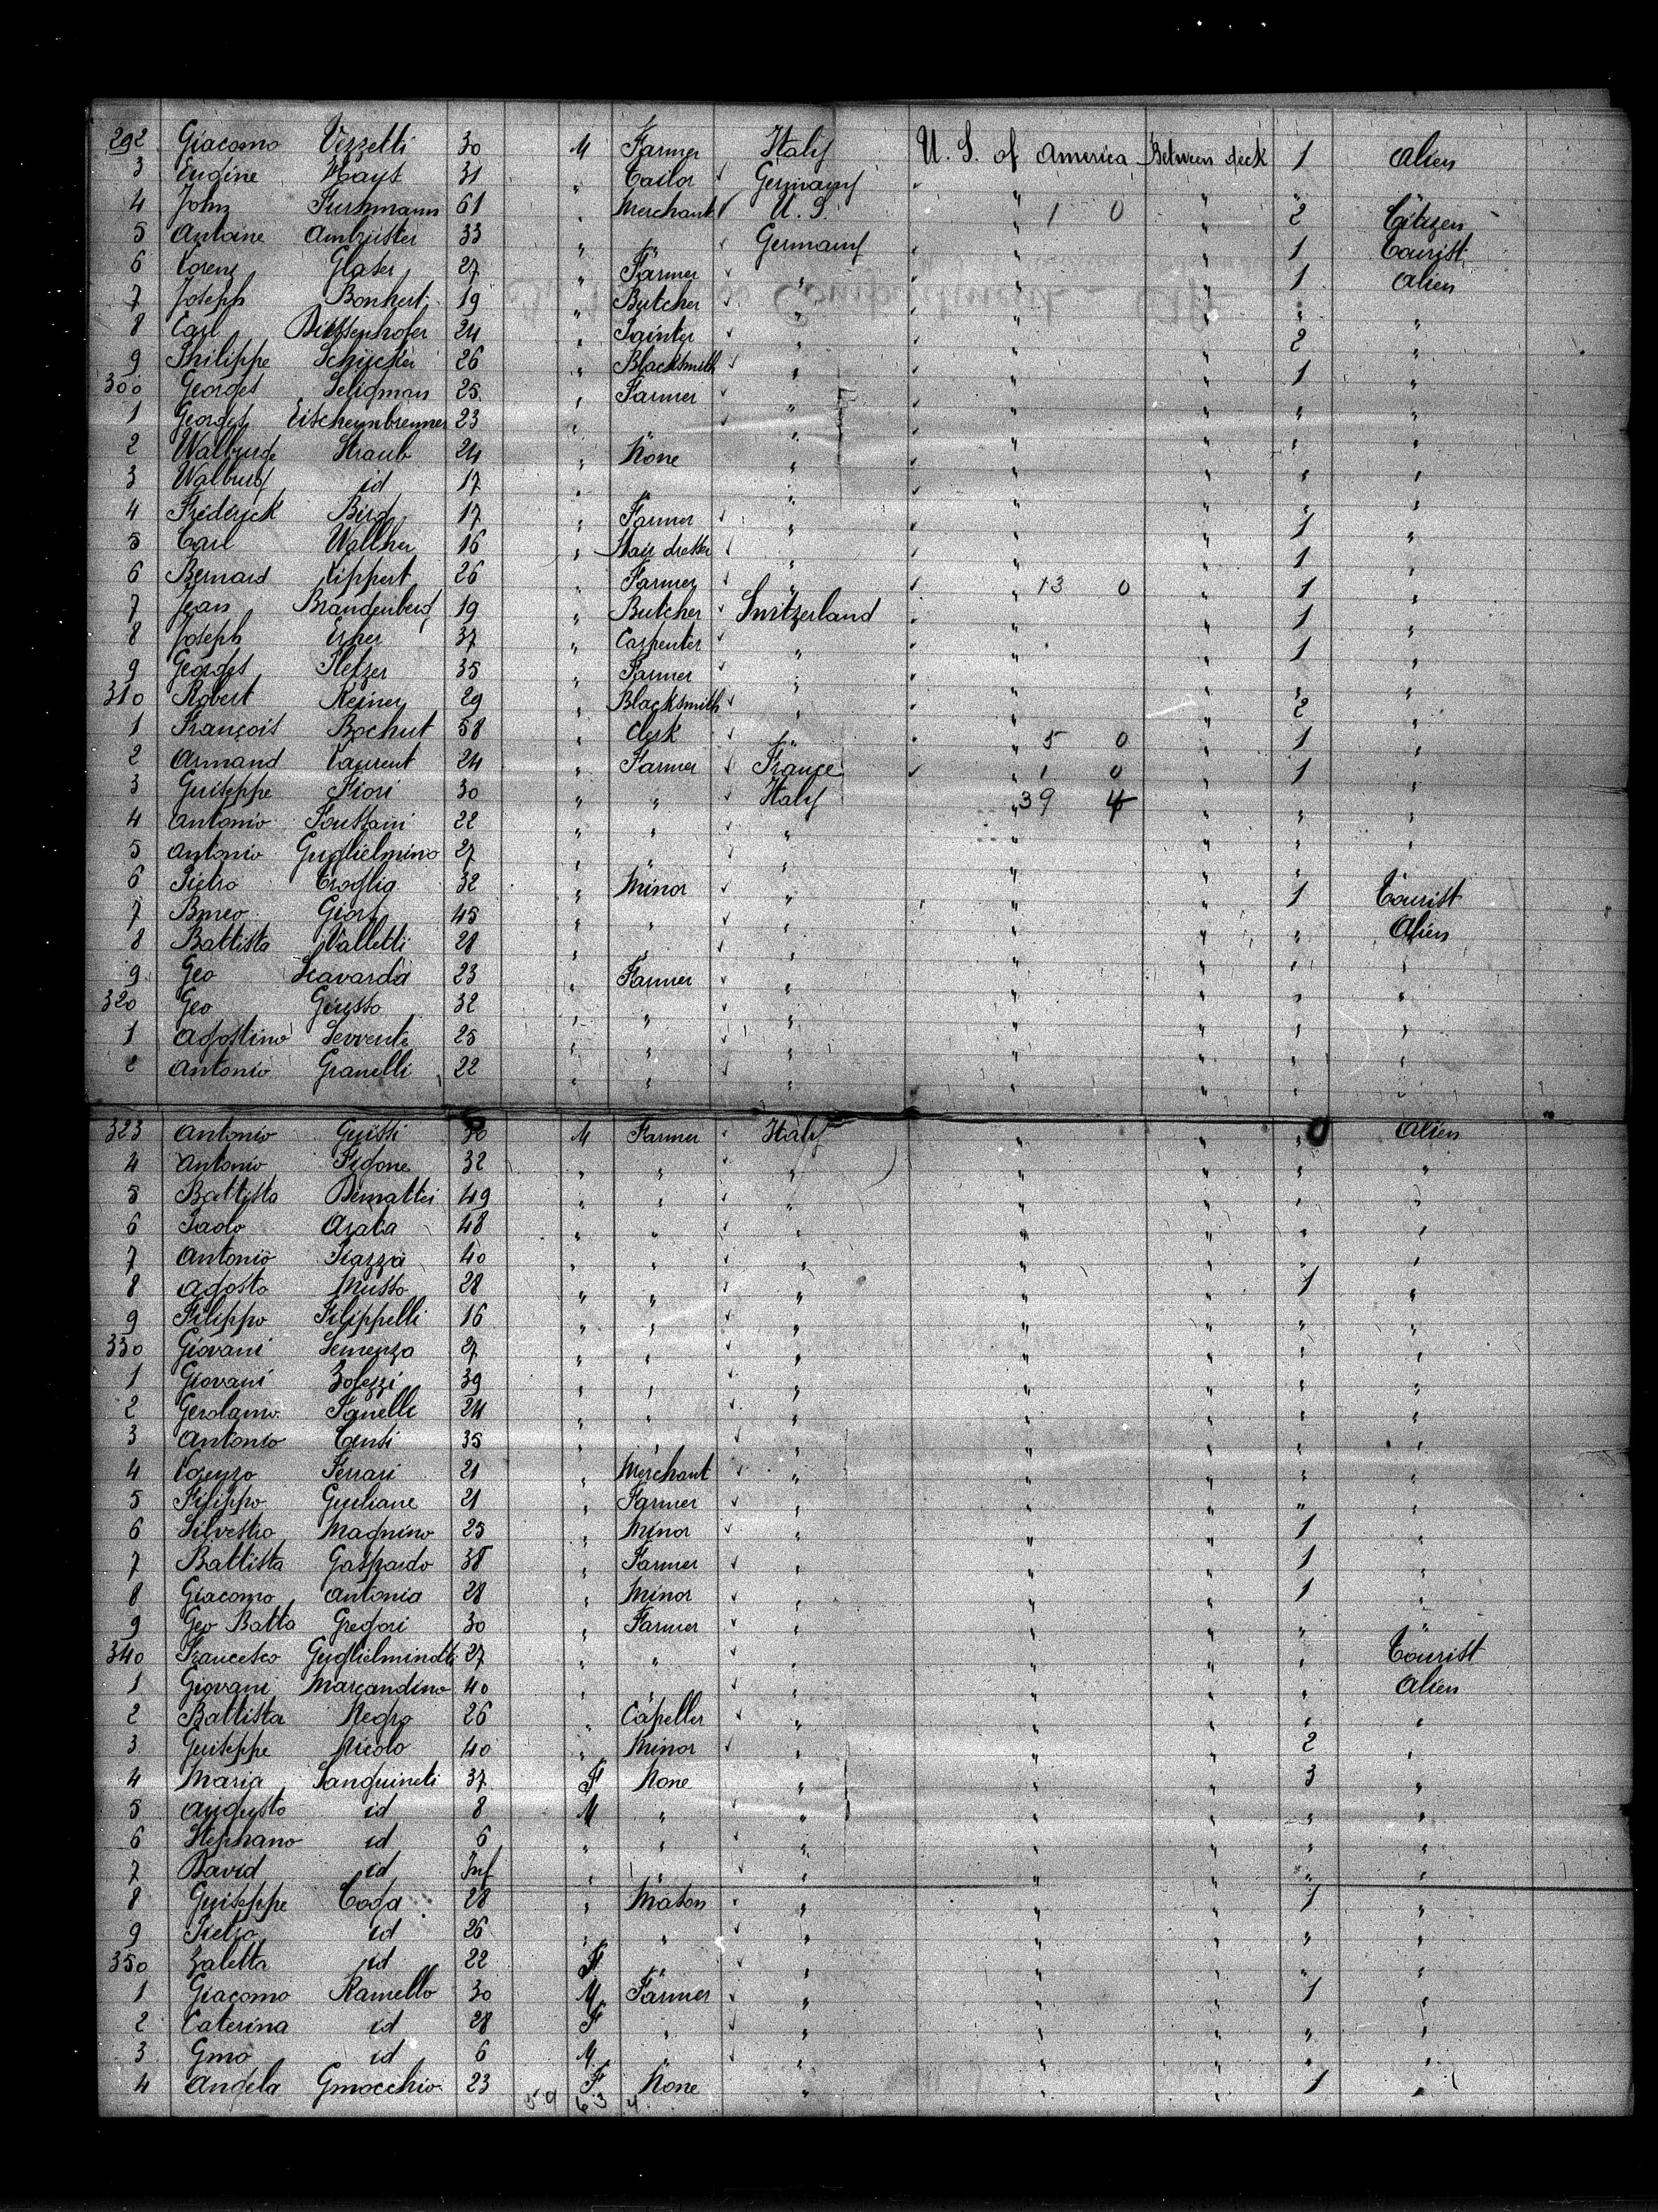 292 Giacomo Vezzetti 30 M Farmer Italy U. S. of America Between deck 1 Alien
3 Eugine Hays 31 " Tailor Germany " " "
4 John Fuhrmann 61 " Merchant U. S. " 1 0 " 2 Citizen
5 Antoine Ambruster 33 " " Germany " " 1 Tourist
6 Lorenz Glaser 27 " Farmer " " " 1 Alien
7 Joseph Bonhert 19 " Butcher " " " " "
8 Carl 24 " Painter " " " 2 "
9 Philippe 26 " Blacksmith " " " 1 "
300 Georges Seligman 25 " Farmer " " " " "
1 Georges Eischennbrenner 23 " " " " " " "
2 Walburge Straub 24 " None " " " " "
3 Walburg id 17 " " " " " " "
4 Frederick Bird 17 " Farmer " " " 1 "
5 Carl Walther 16 " Hair dresser " " " 1 "
6 Bernard Lippert 26 " Farmer " 13 0 " 1 "
7 Jean Brandenberg 19 " Butcher Switzerland " " 1 "
8 Joseph Erner 37 " Carpenter " " " 1 "
9 Georges 35 " Farmer " " " " "
310 Robert Keiner 29 " Blacksmith " " " 2 "
1 François Bochut 58 " Clerk " " 5 0 " 1 "
2 Armand Laurent 24 " Farmer France " 1 0 " 1 "
3 Guiseppe Fiori 30 " " Italy " 39 4 " " "
4 Antonio Foussani 22 " " " " " " "
5 Antonio Guglielmino 27 " " " " " " "
6 Pietro Troglia 32 " Minor " " " 1 Tourist
7 Giors 45 " " " " " " Alien
8 Battista Valletti 28 " " " " " " "
9 Geo Scavarda 23 " Farmer " " " " "
320 Geo Giusso 32 " " " " " " "
1 Agostino Sevvente 25 " " " " " " "
2 Antonio Granelli 22 " " " " " " "
323 Antonio Guissi 30 M Farmer Italy " " " Alien
4 Antonio Figone 32 " " " " " " "
5 Battista Demattei 49 " " " " " " "
6 Paolo Arata 48 " " " " " " "
7 Antonio Piazza 40 " " " " " " "
8 Agosto Musso 28 " " " " " 1 "
9 Filippo Filippelli 16 " " " " " " "
330 Giovani Semenza 27 " " " " " " "
1 Giovani Zolezzi 39 " " " " " " "
2 Gerolamo Fanelli 24 " " " " " " "
3 Antonio Censi 35 " " " " " " "
4 Lorenzo Ferrari 21 " Merchant " " " " "
5 Filippo Giuliane 21 " Farmer " " " " "
6 Silvestro Magnino 25 " Minor " " " 1 "
7 Battista Gaspardo 38 " Farmer " " " 1 "
8 Giacomo Antonia 28 " Minor " " " 1 "
9 Geo Batta Gregori 30 " Farmer " " " " "
340 Francesco Guglielminotti 27 " " " " " " Tourist
1 Giovani Marcandino 40 " " " " " " Alien
2 Battista Negro 26 " Capeller " " " " "
3 Guiseppe Nicolo 40 " Minor " " " 2 "
4 Maria Sanguineti 37 F None " " " 3 "
5 Augusto id 8 M " " " " " "
6 Stephano id 6 " " " " " " "
7 David id Inf " " " " " " "
8 Guiseppe Coda 28 " Mason " " " 1 "
9 Pietro id 26 " " " " " " "
350 Zaletta id 22 F " " " " " "
1 Giacomo Ramello 30 M Farmer " " " 1 "
2 Caterina id 28 F " " " " " "
3 Gmo id 6 M " " " " " "
4 Angela Gnocchio 23 F None " " " 1 "
59 63 4